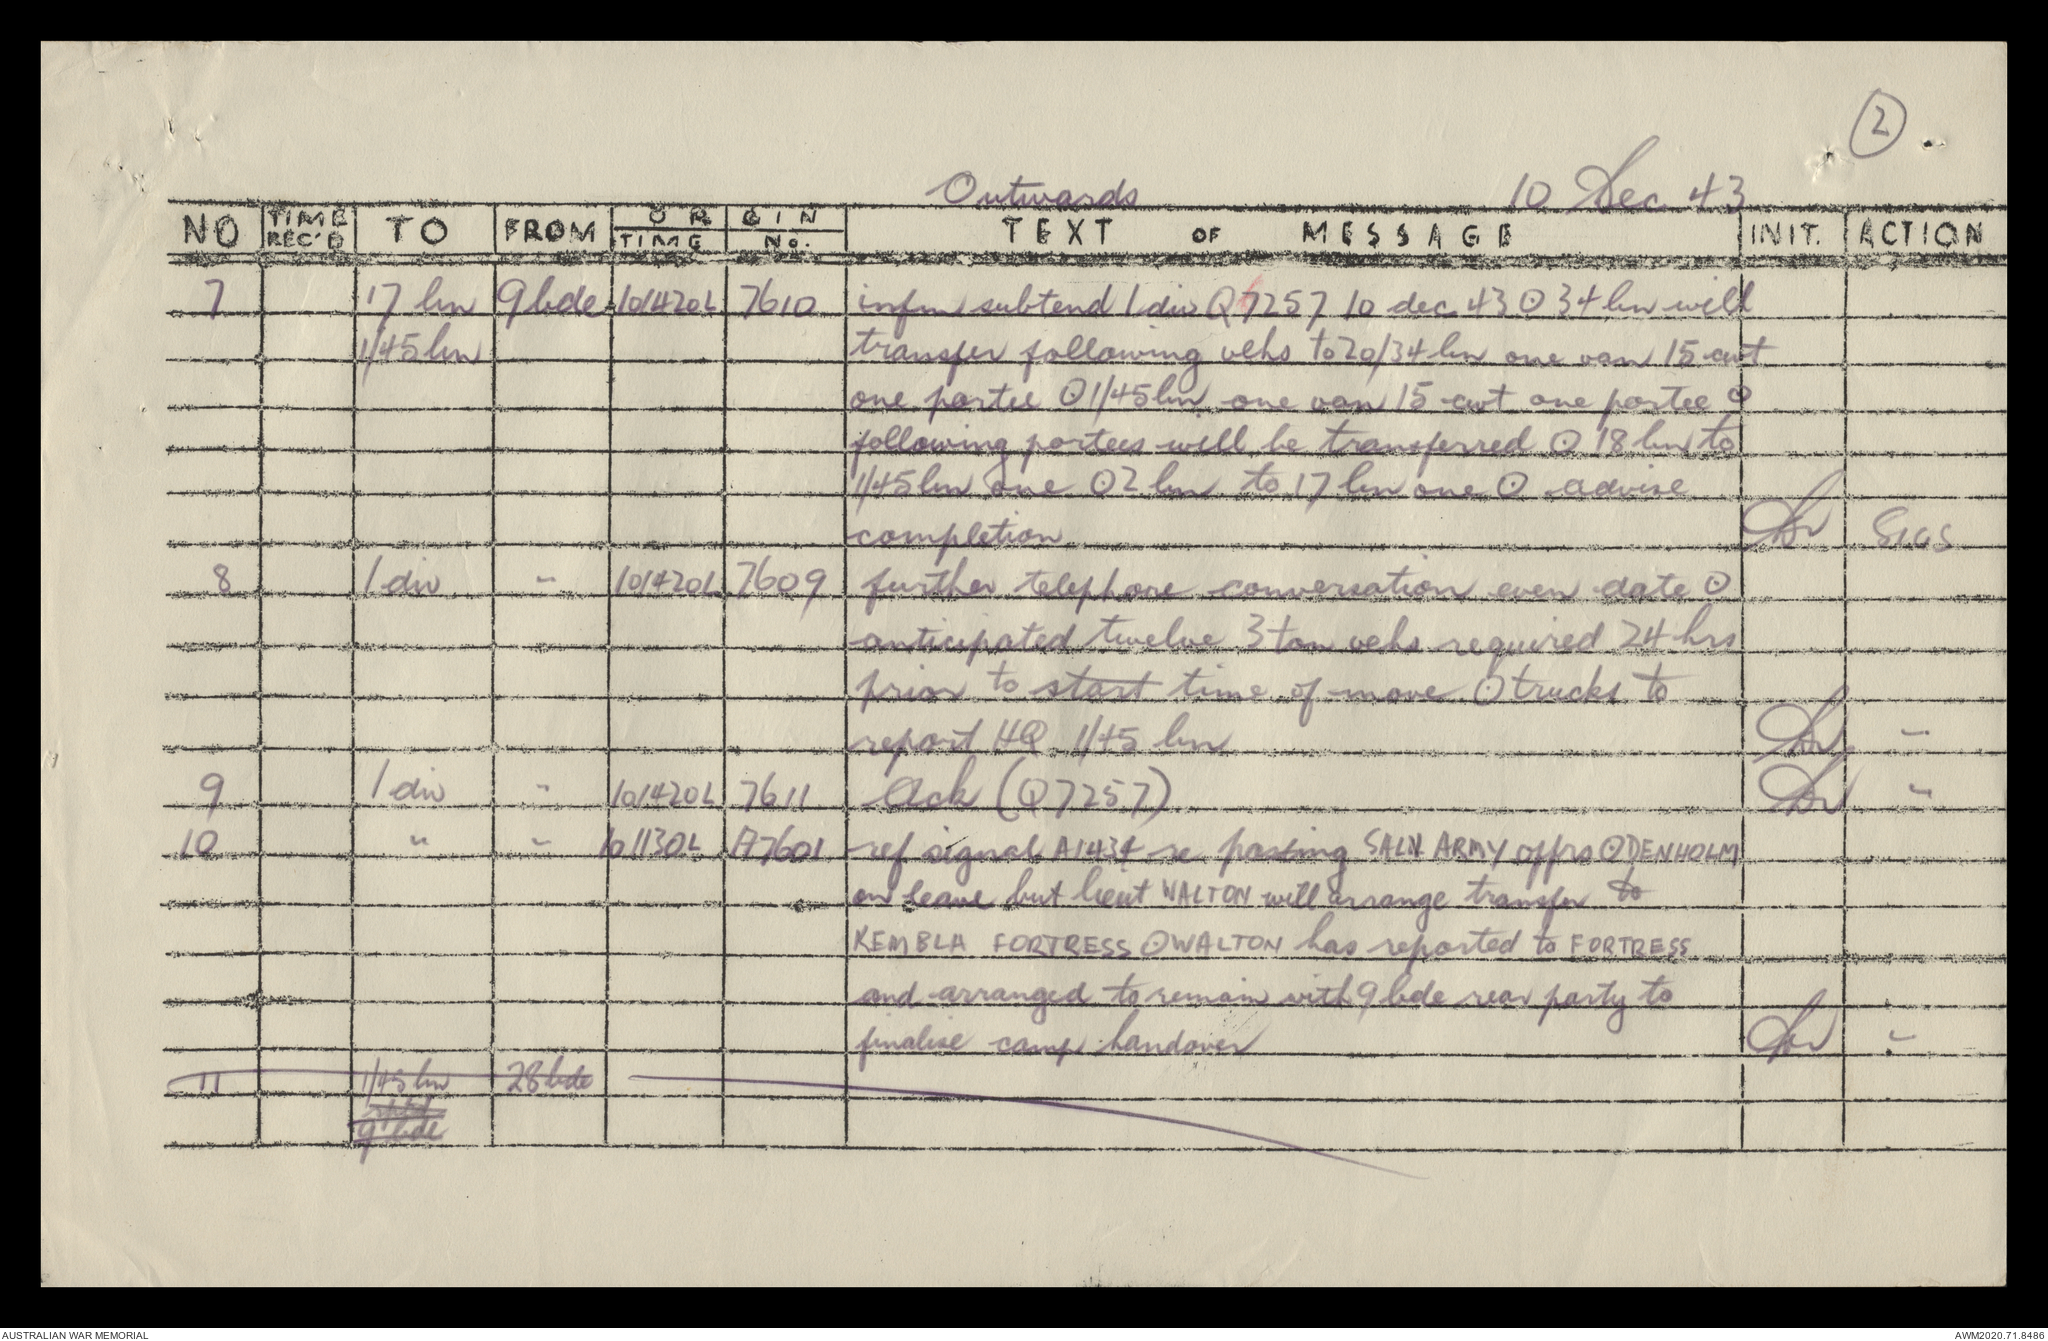 2
Outwards 10 Dec 43
NO TIME REC'D TO FROM ORIGIN TIME No. TEXT OF MESSAGE INIT. ACTION
7 17 bn 9 bde 101420L 7610 infm subtend 1 div Q7257 10 dec 43 ⊙ 34 bn will
1/45 bn transfer following vehs to 20/34 bn one van 15 cwt
one portee ⊙ 1/45 bn one van 15 cwt one portee ⊙
following portees will be transferred ⊙ 18 bn to
1/45 bn one ⊙ 2 bn to 17 bn one ⊙ advise
completion SIGS
8 1 div " 101420L 7609 further telephone conversation even date ⊙
anticipated twelve 3 ton vehs required 24 hrs
prior to start time of move ⊙ trucks to
report HQ 1/45 bn "
9 1 div " 101420L 7611 Ack (Q7257) "
10 " " 101130L A7601 ref signal A1434 re posting SALN ARMY offrs ⊙ DENHOLM
on leave but lieut WALTON will arrange transfer to
KEMBLA FORTRESS ⊙ WALTON has reported to FORTRESS
and arranged to remain with 9 bde rear party to
finalise camp handover "
11 1/45 bn 28 bde
rptd
9 bde
AUSTRALIAN WAR MEMORIAL AWM2020.71.8486